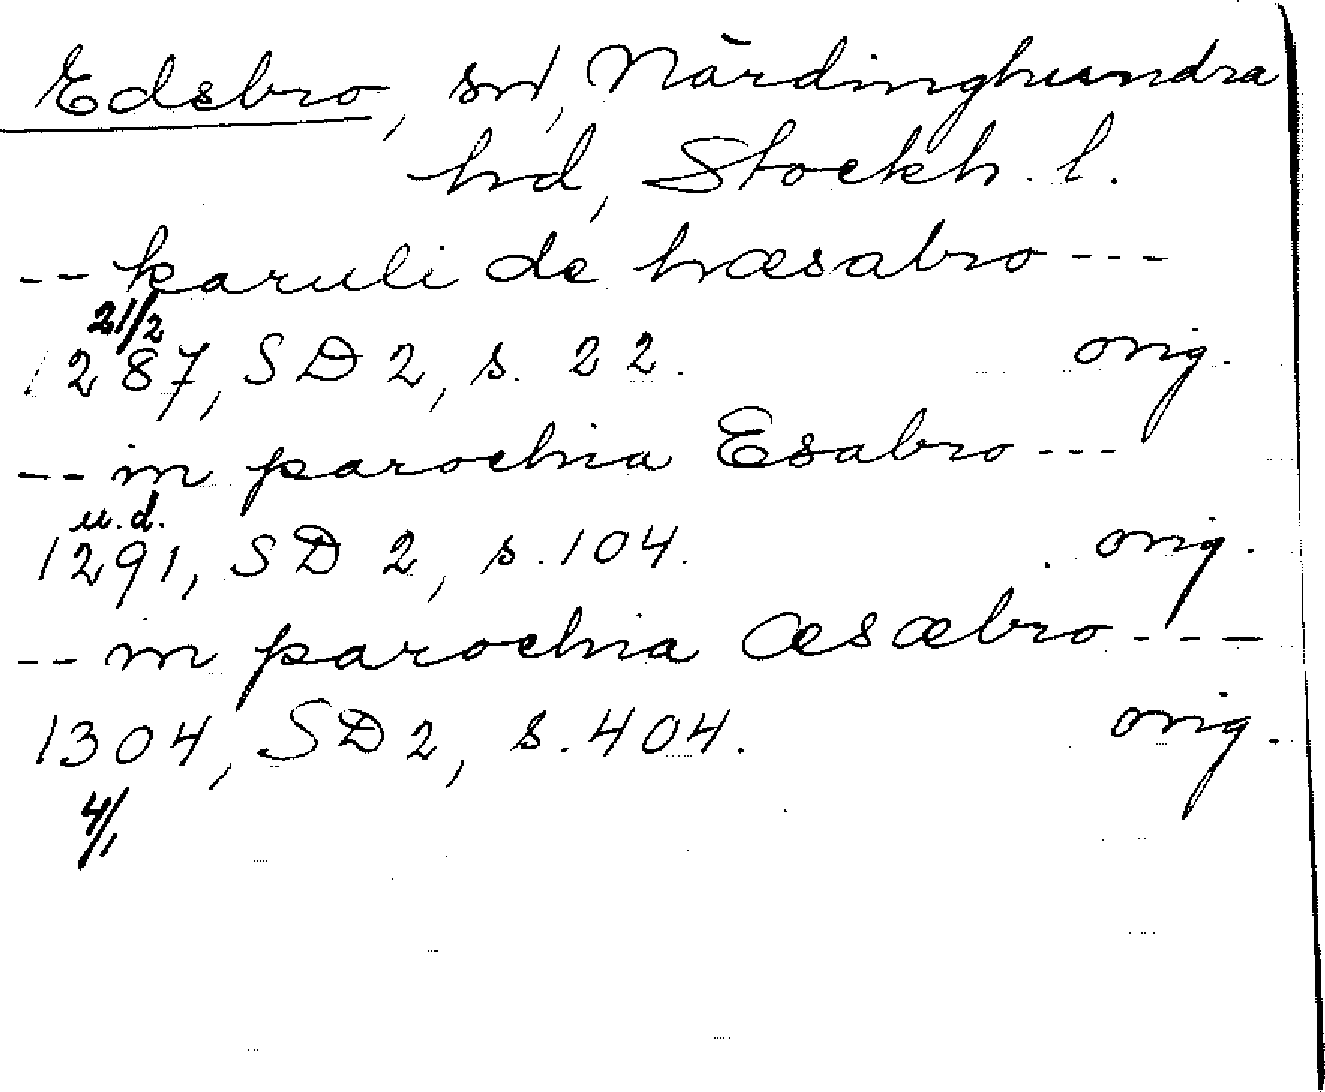 Edsbro, sn, Närdinghundra
hd, Stockh. l.
-- karuli de hæsabro ---
21/2
1287, SD 2, s. 22. orig.
-- in parochia Esabro ---
u.d.
1291, SD 2, s. 104. orig.
-- in parochia Æsæbro ---
1304, SD 2, s. 404. orig.
4/1